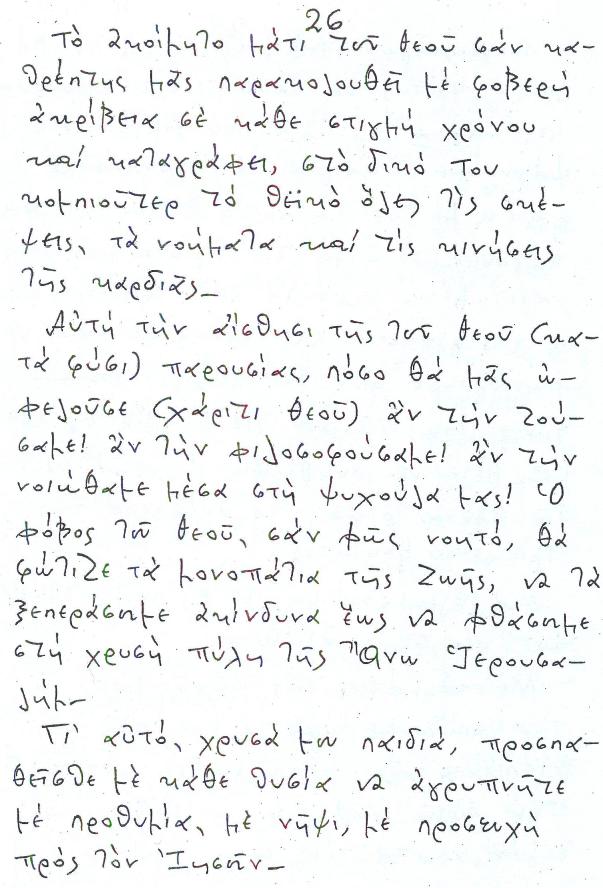 26
Τὸ ἀκοίμητο μάτι τοῦ Θεοῦ σὰν κα-
θρέπτης μᾶς παρακολουθεῖ μὲ φοβερὴ
ἀκρίβεια σὲ κάθε στιγμὴ χρόνου
καὶ καταγράφει, στὸ δικό Του
κομπιοῦτερ τὸ θεϊκὸ ὅλες τὶς σκέ-
ψεις, τὰ νοήματα καὶ τὶς κινήσεις
τῆς καρδιᾶς_
Αὐτὴ τὴν αἴσθησι τῆς τοῦ Θεοῦ (κα-
τὰ φύσι) παρουσίας, πόσο θὰ μᾶς ὠ-
φελοῦσε (χάριτι Θεοῦ) ἂν τὴν ζού-
σαμε! ἂν τὴν φιλοσοφούσαμε! ἂν τὴν
νοιώθαμε μέσα στὴ ψυχούλα μας! Ὁ
φόβος τοῦ Θεοῦ, σὰν φῶς νοητό, θὰ
φώτιζε τὰ μονοπάτια τῆς ζωῆς, νὰ τὰ
ξεπεράσημε ἀκίνδυνα ἕως νὰ φθάσημε
στὴ χρυσὴ πύλη τῆς Ἄνω Ἱερουσα-
λήμ_
Γι' αὐτό, χρυσά μου παιδιά, προσπα-
θεῖσθε μὲ κάθε θυσία νὰ ἀγρυπνῆτε
μὲ προθυμία, μὲ νῆψι, μὲ προσευχὴ
πρὸς τὸν Ἰησοῦν_